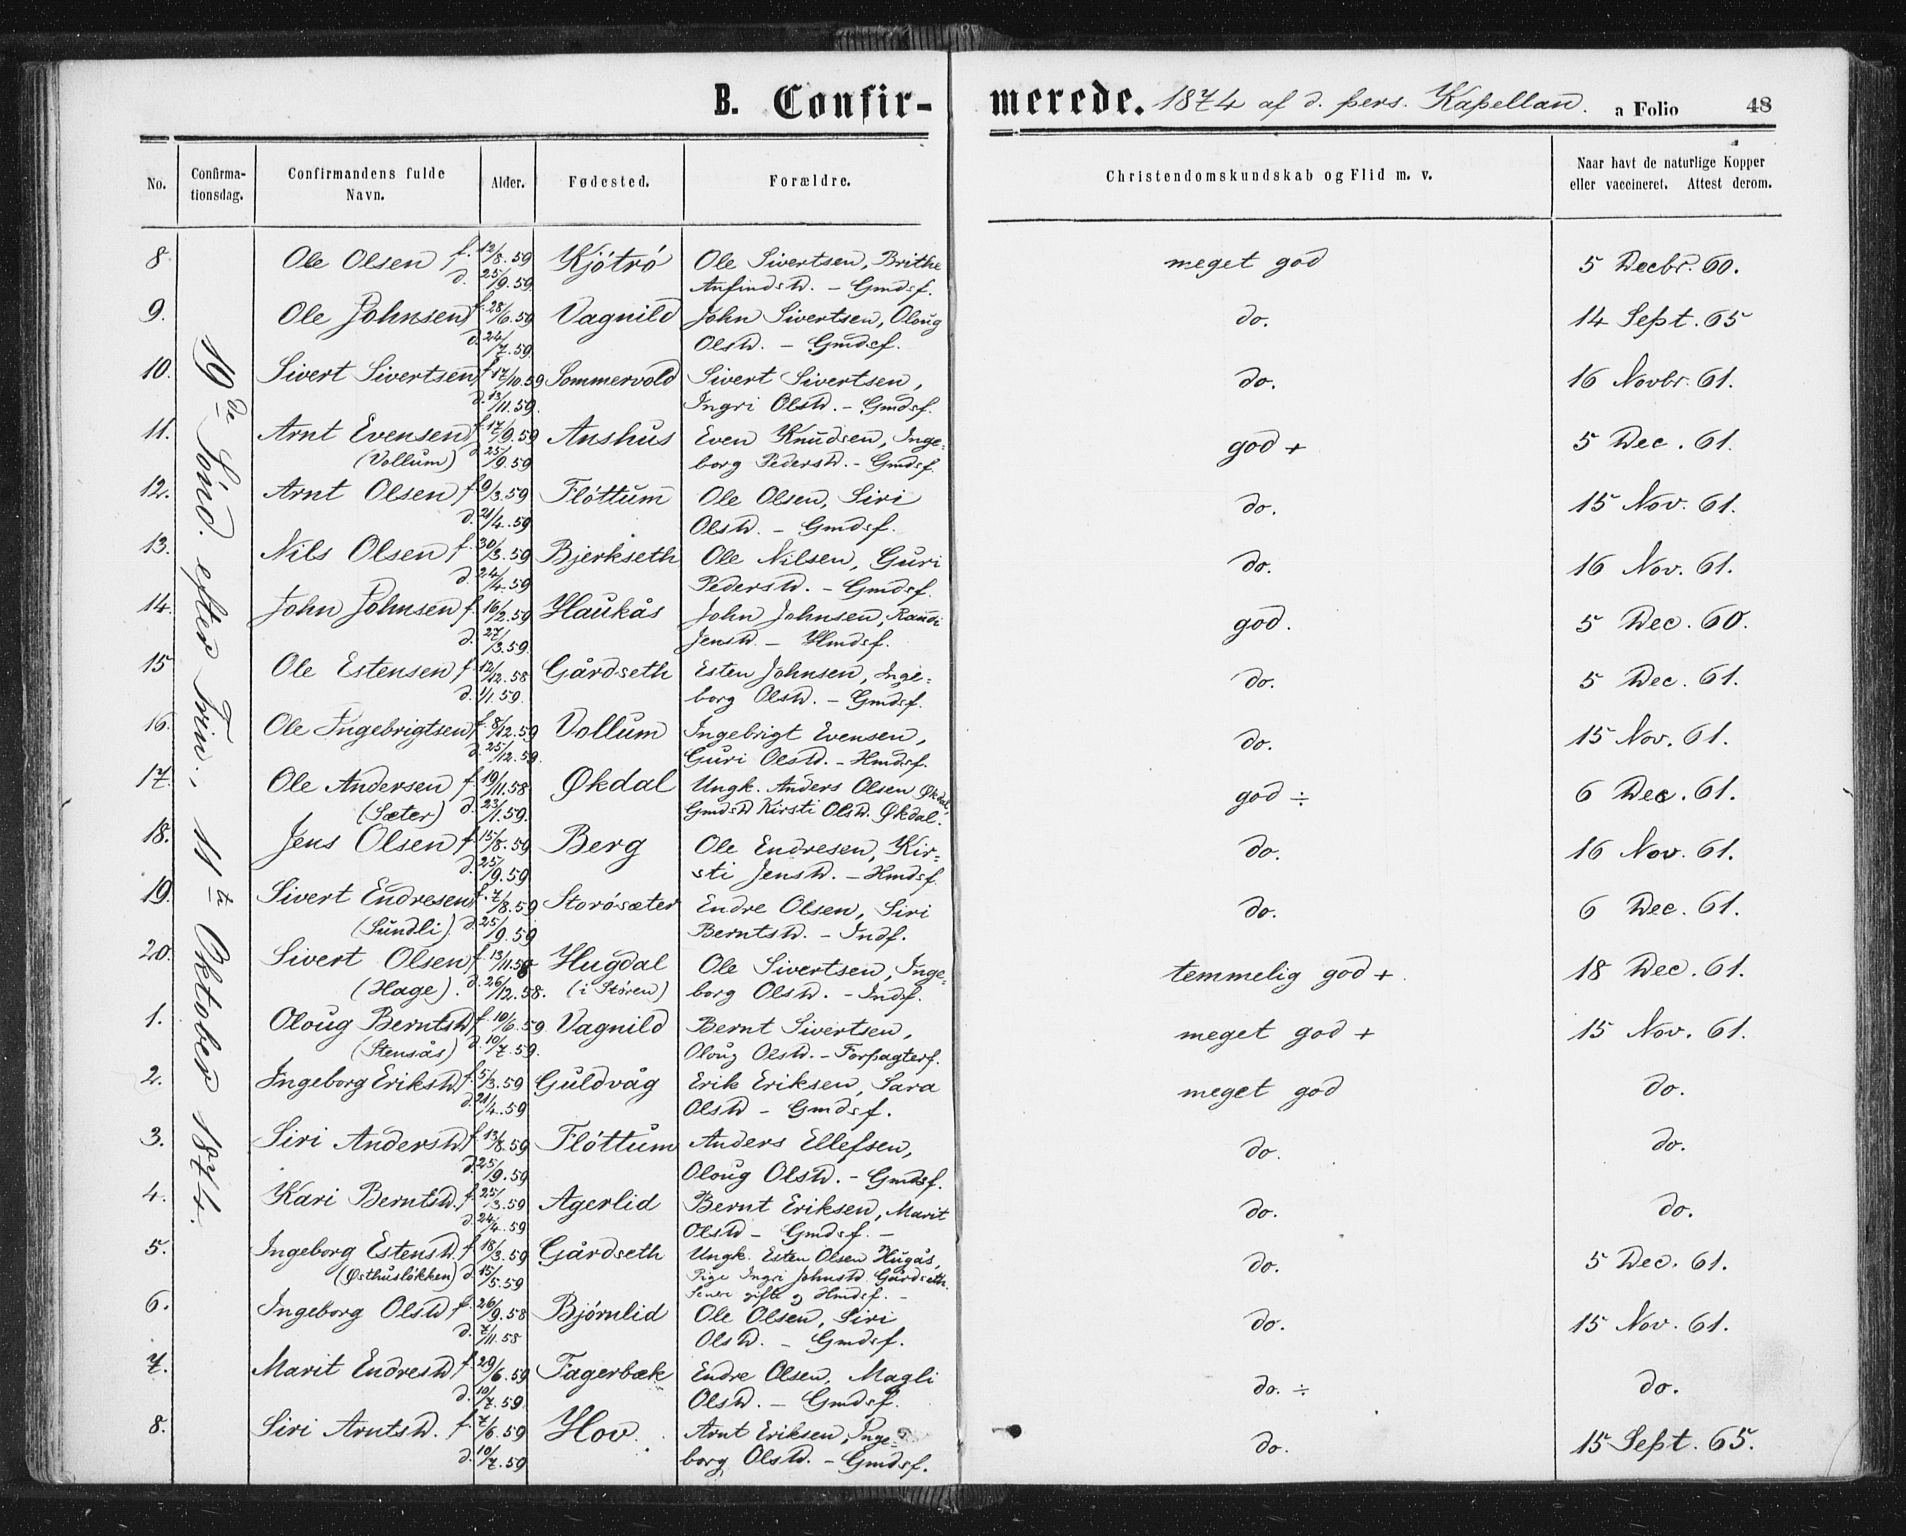 B. Confirmerede. 1874 af d. pers. Kapellan. a Folio 48
No. Confirmationsdag. Confirmandens fulde Navn. Alder. Fødested. Forældre. Christendomskundskab og Flid m. v. Naar havt de naturlige Kopper eller vaccineret. Attest derom.
19de Sönd. efter Trin., 11te Oktober 1874.
8 Ole Olsen, f. 12/8.59 Kjötrö Ole Sivertsen, Brithe meget god 5 Decbr. 60.
d. 25/9.59. Anfindsd. - Gmdsf.
9. Ole Johnsen f. 28/6.59 Vagnild John Sivertsen, Oloug do. 14 Sept. 65
d. 24/7.59. Olsd. - Gmdsf.
10. Sivert Sivertsen f. 17/10.59 Sommervold Sivert Sivertsen, do. 16 Novbr. 61.
d. 13/11.59. Ingri Olsd. - Gmdsf.
11. Arnt Evensen f. 17/9.59 Anshus Even Knudsen, Inge- god + 5 Dec. 61.
(Vollum) d. 25/9.59 borg Pedersd. - Gmdsf.
12. Arnt Olsen f. 9/3.59 Flöttum Ole Olsen, Siri do. 15 Nov. 61.
d. 21/4.59 Olsd. - Gmdsf.
13. Nils Olsen f. 30/3.59 Bjerkseth Ole Nilsen, Guri do. 16 Nov. 61.
d. 24/4.59 Pedersd. - Gmdsf.
14. John Johnsen f. 16/2.59 Haukås John Johnsen, Randi god. 5 Dec. 60.
d. 27/3.59. Jensd. - Hmdsf.
15 Ole Estensen f. 12/12.58 Gårdseth Esten Johnsen, Inge- do. 5 Dec. 61.
d. 1/1.59. borg Olsd. - Gmdsf.
16. Ole Ingebrigtsen f. 8/12.59 Vollum Ingebrigt Evensen, do. 15 Nov. 61.
d. 25/12.59. Guri Olsd. - Hmdsf.
17. Ole Andersen f. 19/11.58 Økdal Ungk. Anders Olsen Økdal, god ÷ 6 Dec. 61.
(Sæter) d. 23/1.59. Gmdsd Kirsti Olsd. Økdal.
18. Jens Olsen f. 15/8.59 Berg Ole Endresen, Kir- do. 16 Nov. 61.
d. 25/9.59 sti Jensd. - Hmdsf
19. Sivert Endresen f. 7/8.59 Storösæter Endre Olsen, Siri do. 6 Dec. 61.
(Sundli). d. 25/9.59 Berntsd. - Indf.
20. Sivert Olsen f. 13/11.58 Hugdal Ole Sivertsen, Inge- temmelig god + 18 Dec. 61.
(Hage). d. 26/12.58. (i Stören) borg Olsd. - Indf.
1. Oloug Berntsd f. 10/6.59 Vagnild Bernt Sivertsen, meget god + 15 Nov. 61.
(Stensås) d. 10/7.59. Oloug Olsd. - Forpagterf.
2. Ingeborg Eriksd. f. 5/3.59 Guldvåg Erik Eriksen, Sara meget god do.
d. 21/4.59 Olsd - Gmdsf.
3. Siri Andersd. f. 13/8.59 Flöttum Anders Ellefsen, do. do.
d. 25/9.59 Oloug Olsd. - Gmdsf.
4. Kari Berntsd. f. 25/3.59 Agerlid Bernt Eriksen, Marit do. do.
d. 24/4.59 Olsd - Gmdsf. -
5. Ingeborg Estensd. f. 18/3.59 Gårdseth Ungk. Esten Olsen Hugås, do. 5 Dec. 61.
(Østhuslökken) d. 15/5.59 Pige Ingri Johnsd. Gårdseth.
Senere gifte og Hmdsf. -
6. Ingeborg Olsd f. 26/9.58 Björnlid Ole Olsen, Siri do. 15 Nov. 61.
d. 7/11.58 Olsd. - Gmdsf.
7. Marit Endresd f. 29/6.59 Fagerbæk Endre Olsen, Magli do. ÷ do.
d. 10/7.59. Olsd. - Gmdsf.
8. Siri Arntsd. f. 7/6.59 Hov. Arnt Eriksen, Inge- do. 15 Sept. 65.
d. 10/7.59 borg Olsd. - Gmdsf.